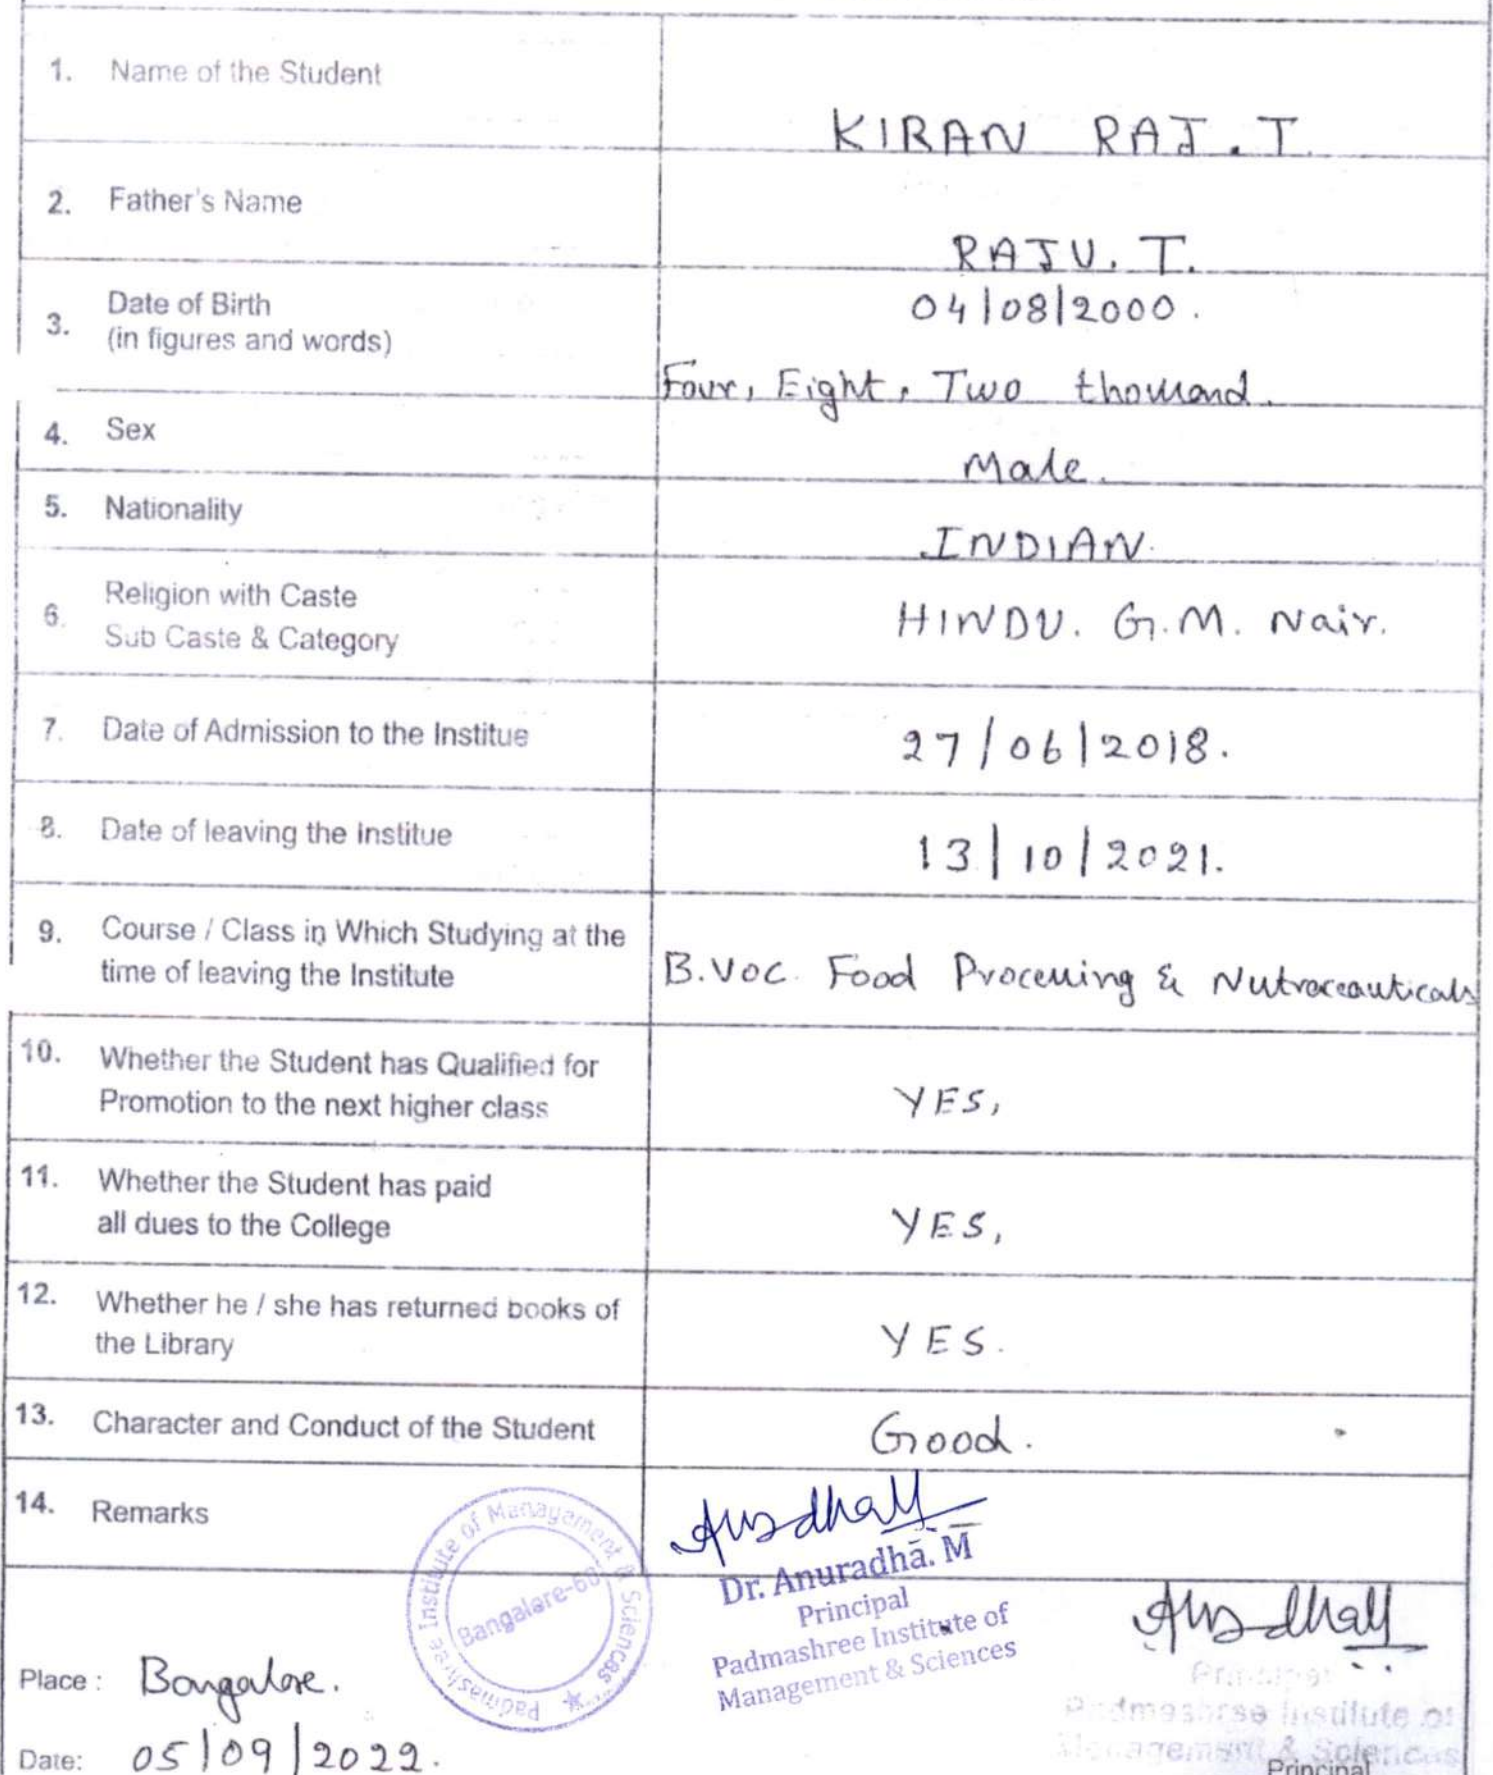 1. Name of the Student
KIRAN RAJ. T.
2. Father's Name
RAJU. T.
3. Date of Birth
(in figures and words)
04/08/2000.
Four, Eight, Two thousand.
4. Sex
Male.
5. Nationality
INDIAN.
6. Religion with Caste
Sub Caste & Category
HINDU. G.M. Nair.
7. Date of Admission to the Institue
27/06/2018.
8. Date of leaving the institue
13/10/2021.
9. Course / Class in Which Studying at the
time of leaving the Institute
B.Voc Food Processing & Nutraceauticals
10. Whether the Student has Qualified for
Promotion to the next higher class
YES,
11. Whether the Student has paid
all dues to the College
YES,
12. Whether he / she has returned books of
the Library
YES.
13. Character and Conduct of the Student
Good.
14. Remarks
Padmashree Institute of Management & Sciences
Bangalore-60
Dr. Anuradha. M
Principal
Padmashree Institute of
Management & Sciences
Place : Bangalore.
Date: 05/09/2022.
Principal
Padmashree Institute of
Management & Sciences
Principal